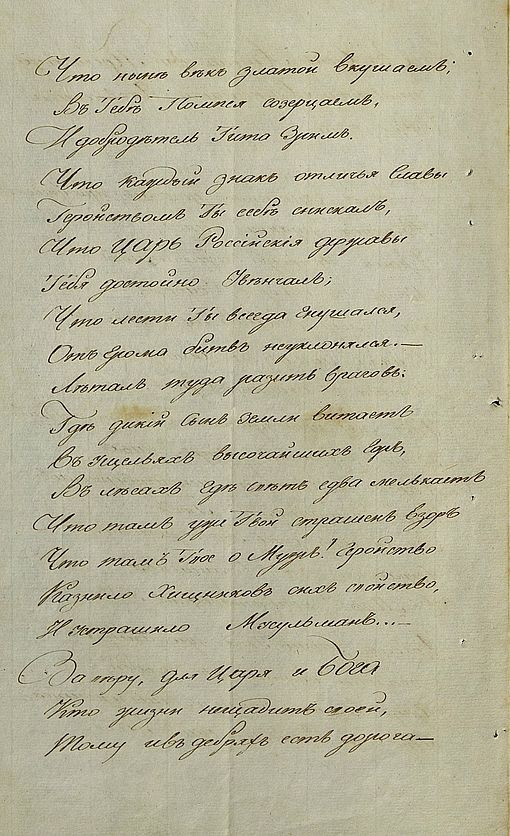 Что нынѣ вѣкъ златой вкушаемъ;
Въ Тебѣ Помпея созерцаемъ,
И добродѣтель Тита Зримъ.
Что каждый знакъ отличья Славы
Геройствомъ Ты себѣ снискалъ,
Что Царь Россійскія державы
Тебя достойно Увѣнчалъ;
Что лести Ты всегда гнушался,
Отъ грома битвъ неуклонялся. —
Лѣталъ туда разить враговъ:
Гдѣ дикій Сынъ Земли витаетъ
Въ ущельяхъ высочайшихъ горъ,
Въ лѣсахъ гдѣ свѣтъ едва мелькаетъ
Что тамъ ужъ Твой страшенъ взоръ
Что тамъ Твое о Мужъ! Геройство
Казнило Хищниковъ сихъ свойство,
И устрашило Мусульманъ... —
За вѣру, для Царя и Бога
Кто жизни нещадитъ своей,
Тому и въ дебряхъ есть дорога —